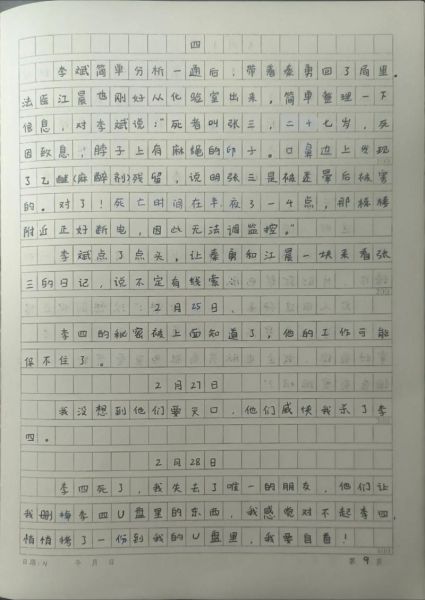 四
李斌简单分析一通后,带着秦勇回了局里。
法医江晨也刚好从化验室出来,简单整理一下
信息,对李斌说:“死者叫张三,二十七岁,死
因窒息,脖子上有麻绳的印子。口鼻边上发现
了乙醚(麻醉剂)残留,说明张三是被迷晕后被害
的。对了!死亡时间在半夜3-4点,那栋楼
附近正好断电,因此无法调监控。”
李斌点了点头,让秦勇和江晨一块来看张
三的日记,说不定有线索。
2月25日
李四的秘密被上面知道了,他的工作可能
保不住了。
2月27日
我没想到他们要灭口,他们威侠我杀了李
四。
2月28日
李四死了,我失去了唯一的朋友,他们让
我删掉李四U盘里的东西,我感觉对不起李四,
悄悄拷了一份到我的U盘里,我要自首!
日期:N 年 月 日 第 9 页